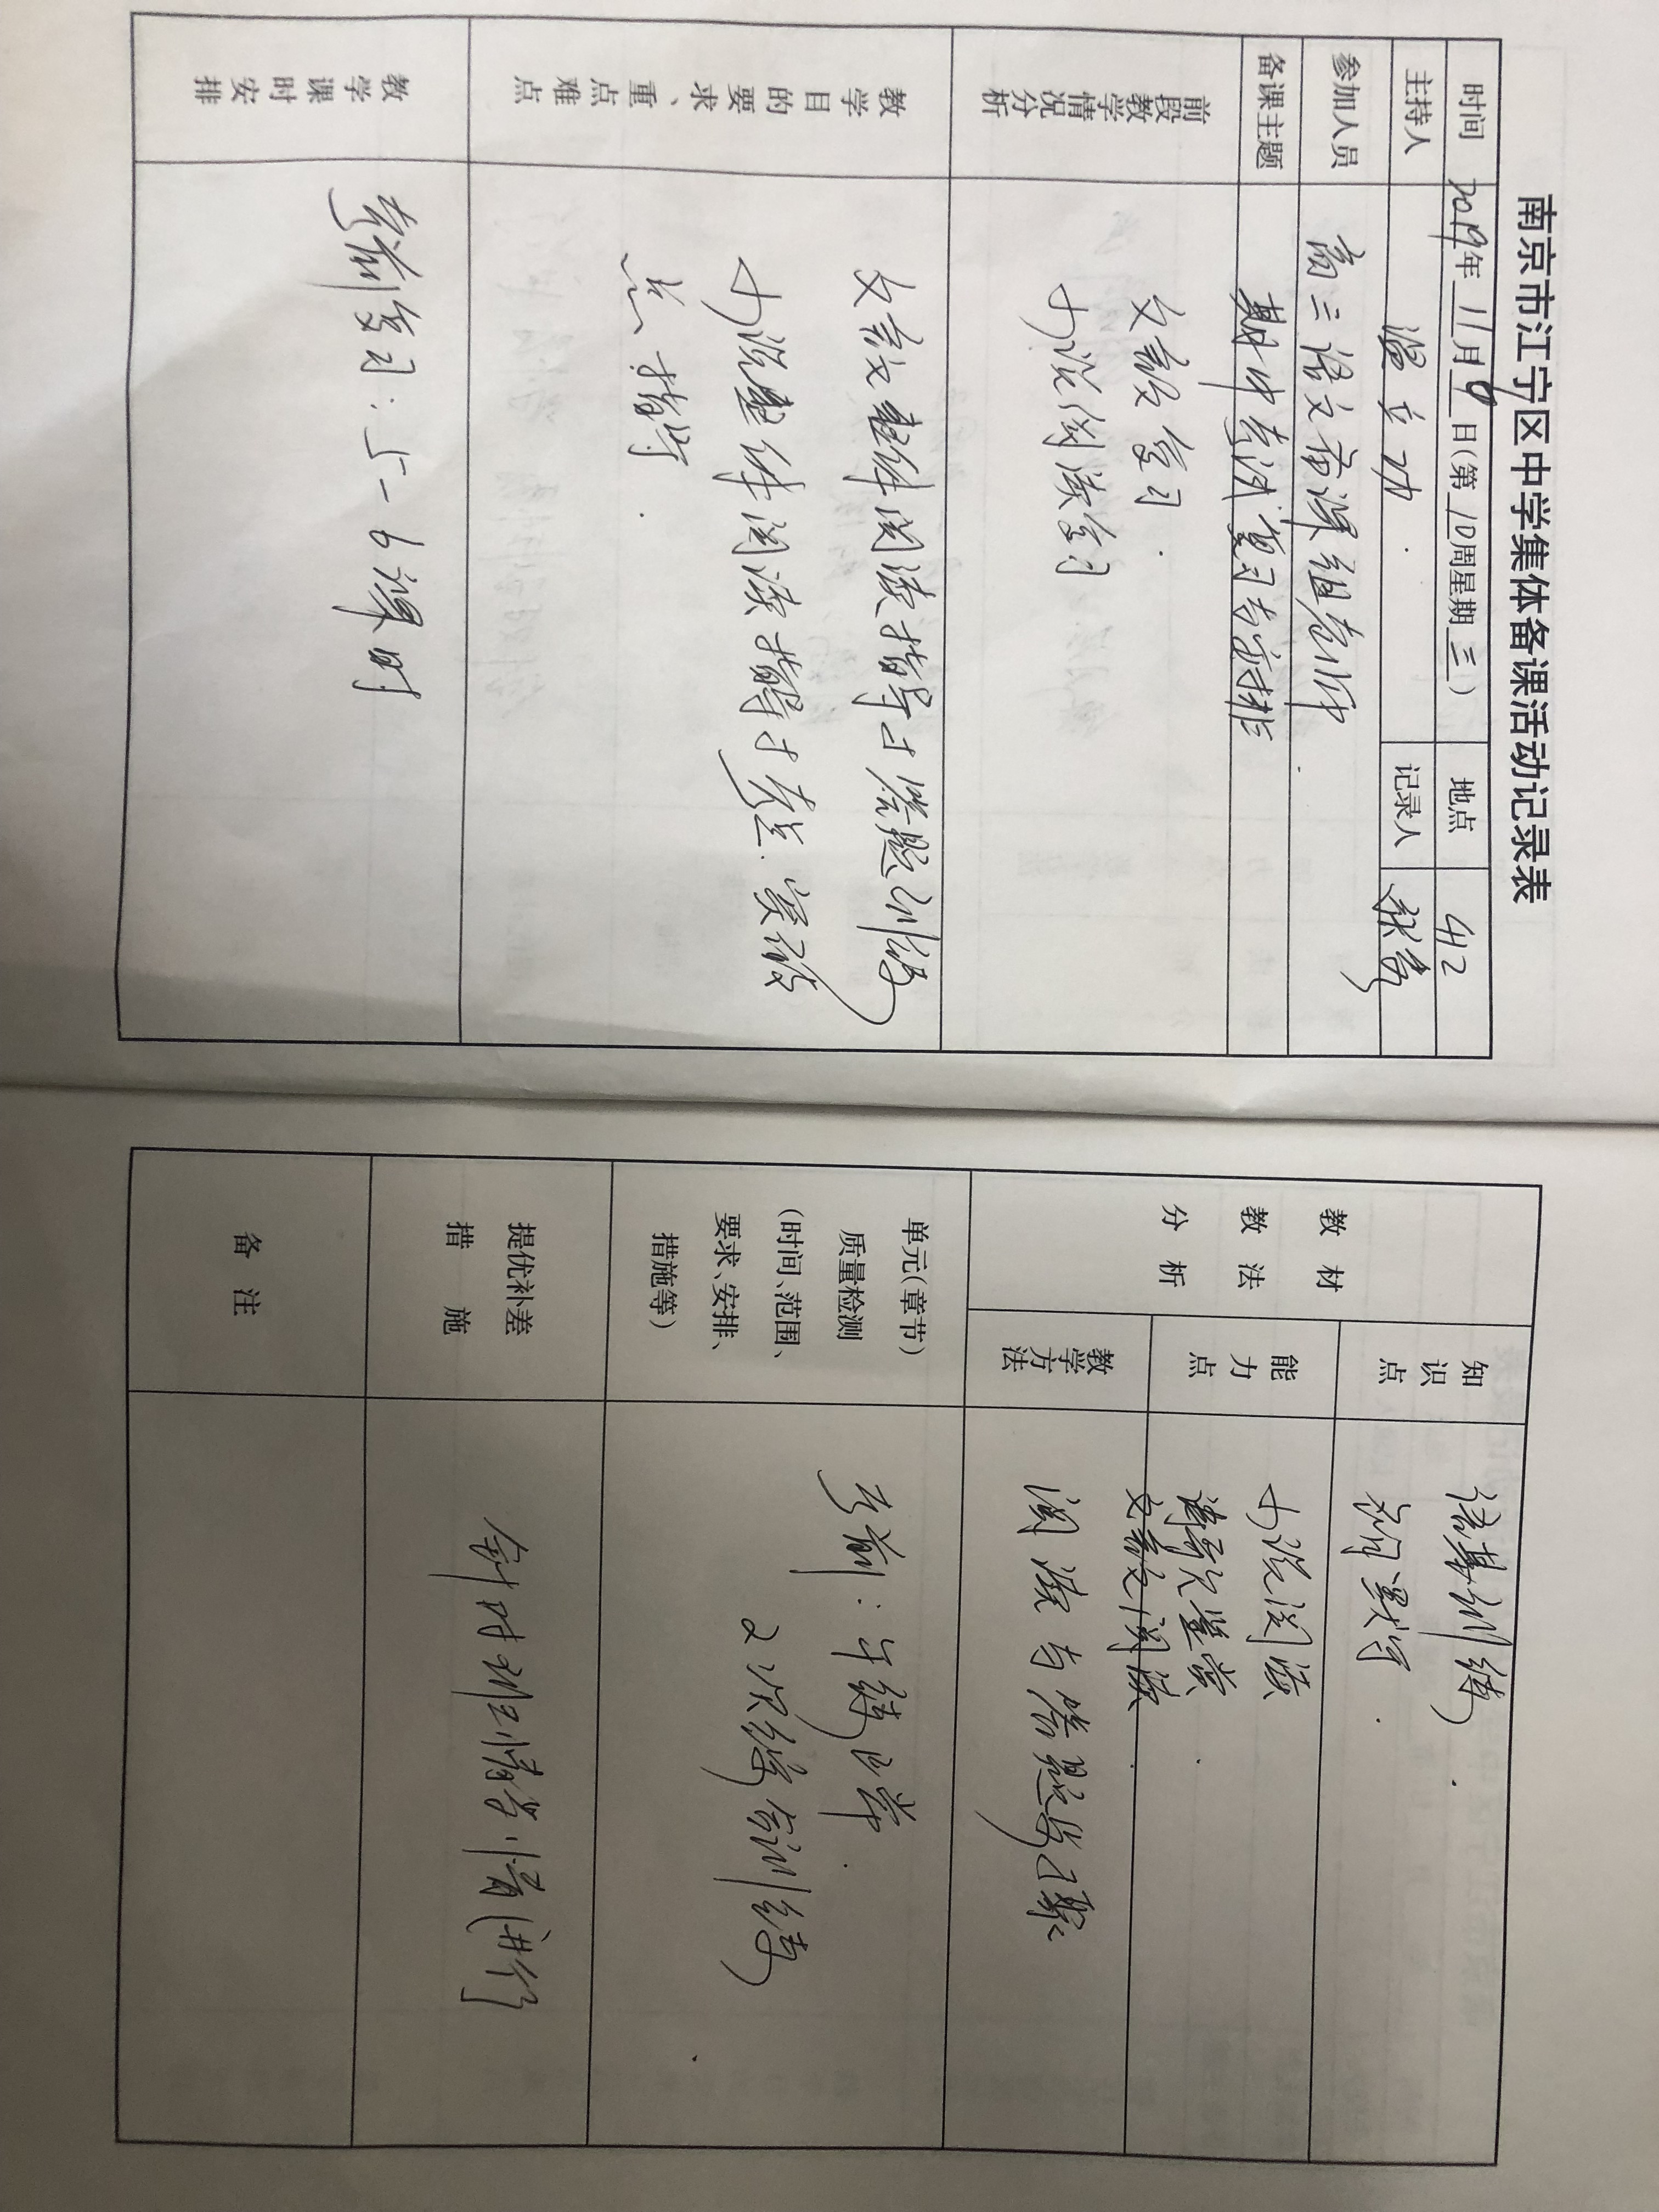 南京市江宁区中学集体备课活动记录表
时间 2019年11月9日(第10周星期三) 地点 412
主持人 温立功 记录人 张隽
参加人员 高三语文备课组老师
备课主题 期中考试复习与安排
前段教学情况分析
文言文复习
小说阅读复习
教学目的要求、重点难点
文言文整体阅读指导与答题训练
小说整体阅读指导与考点
点指导
教学课时安排
考前复习:5-6课时
教材教法分析
知识点
语基训练
能力点
小说阅读
诗歌鉴赏
文言文阅读
教学方法
阅读与答题步骤
单元(章节)质量检测(时间、范围、要求、安排、措施等)
考前:午练正常
2次综合训练
提优补差措施
针对班情学情进行
备注